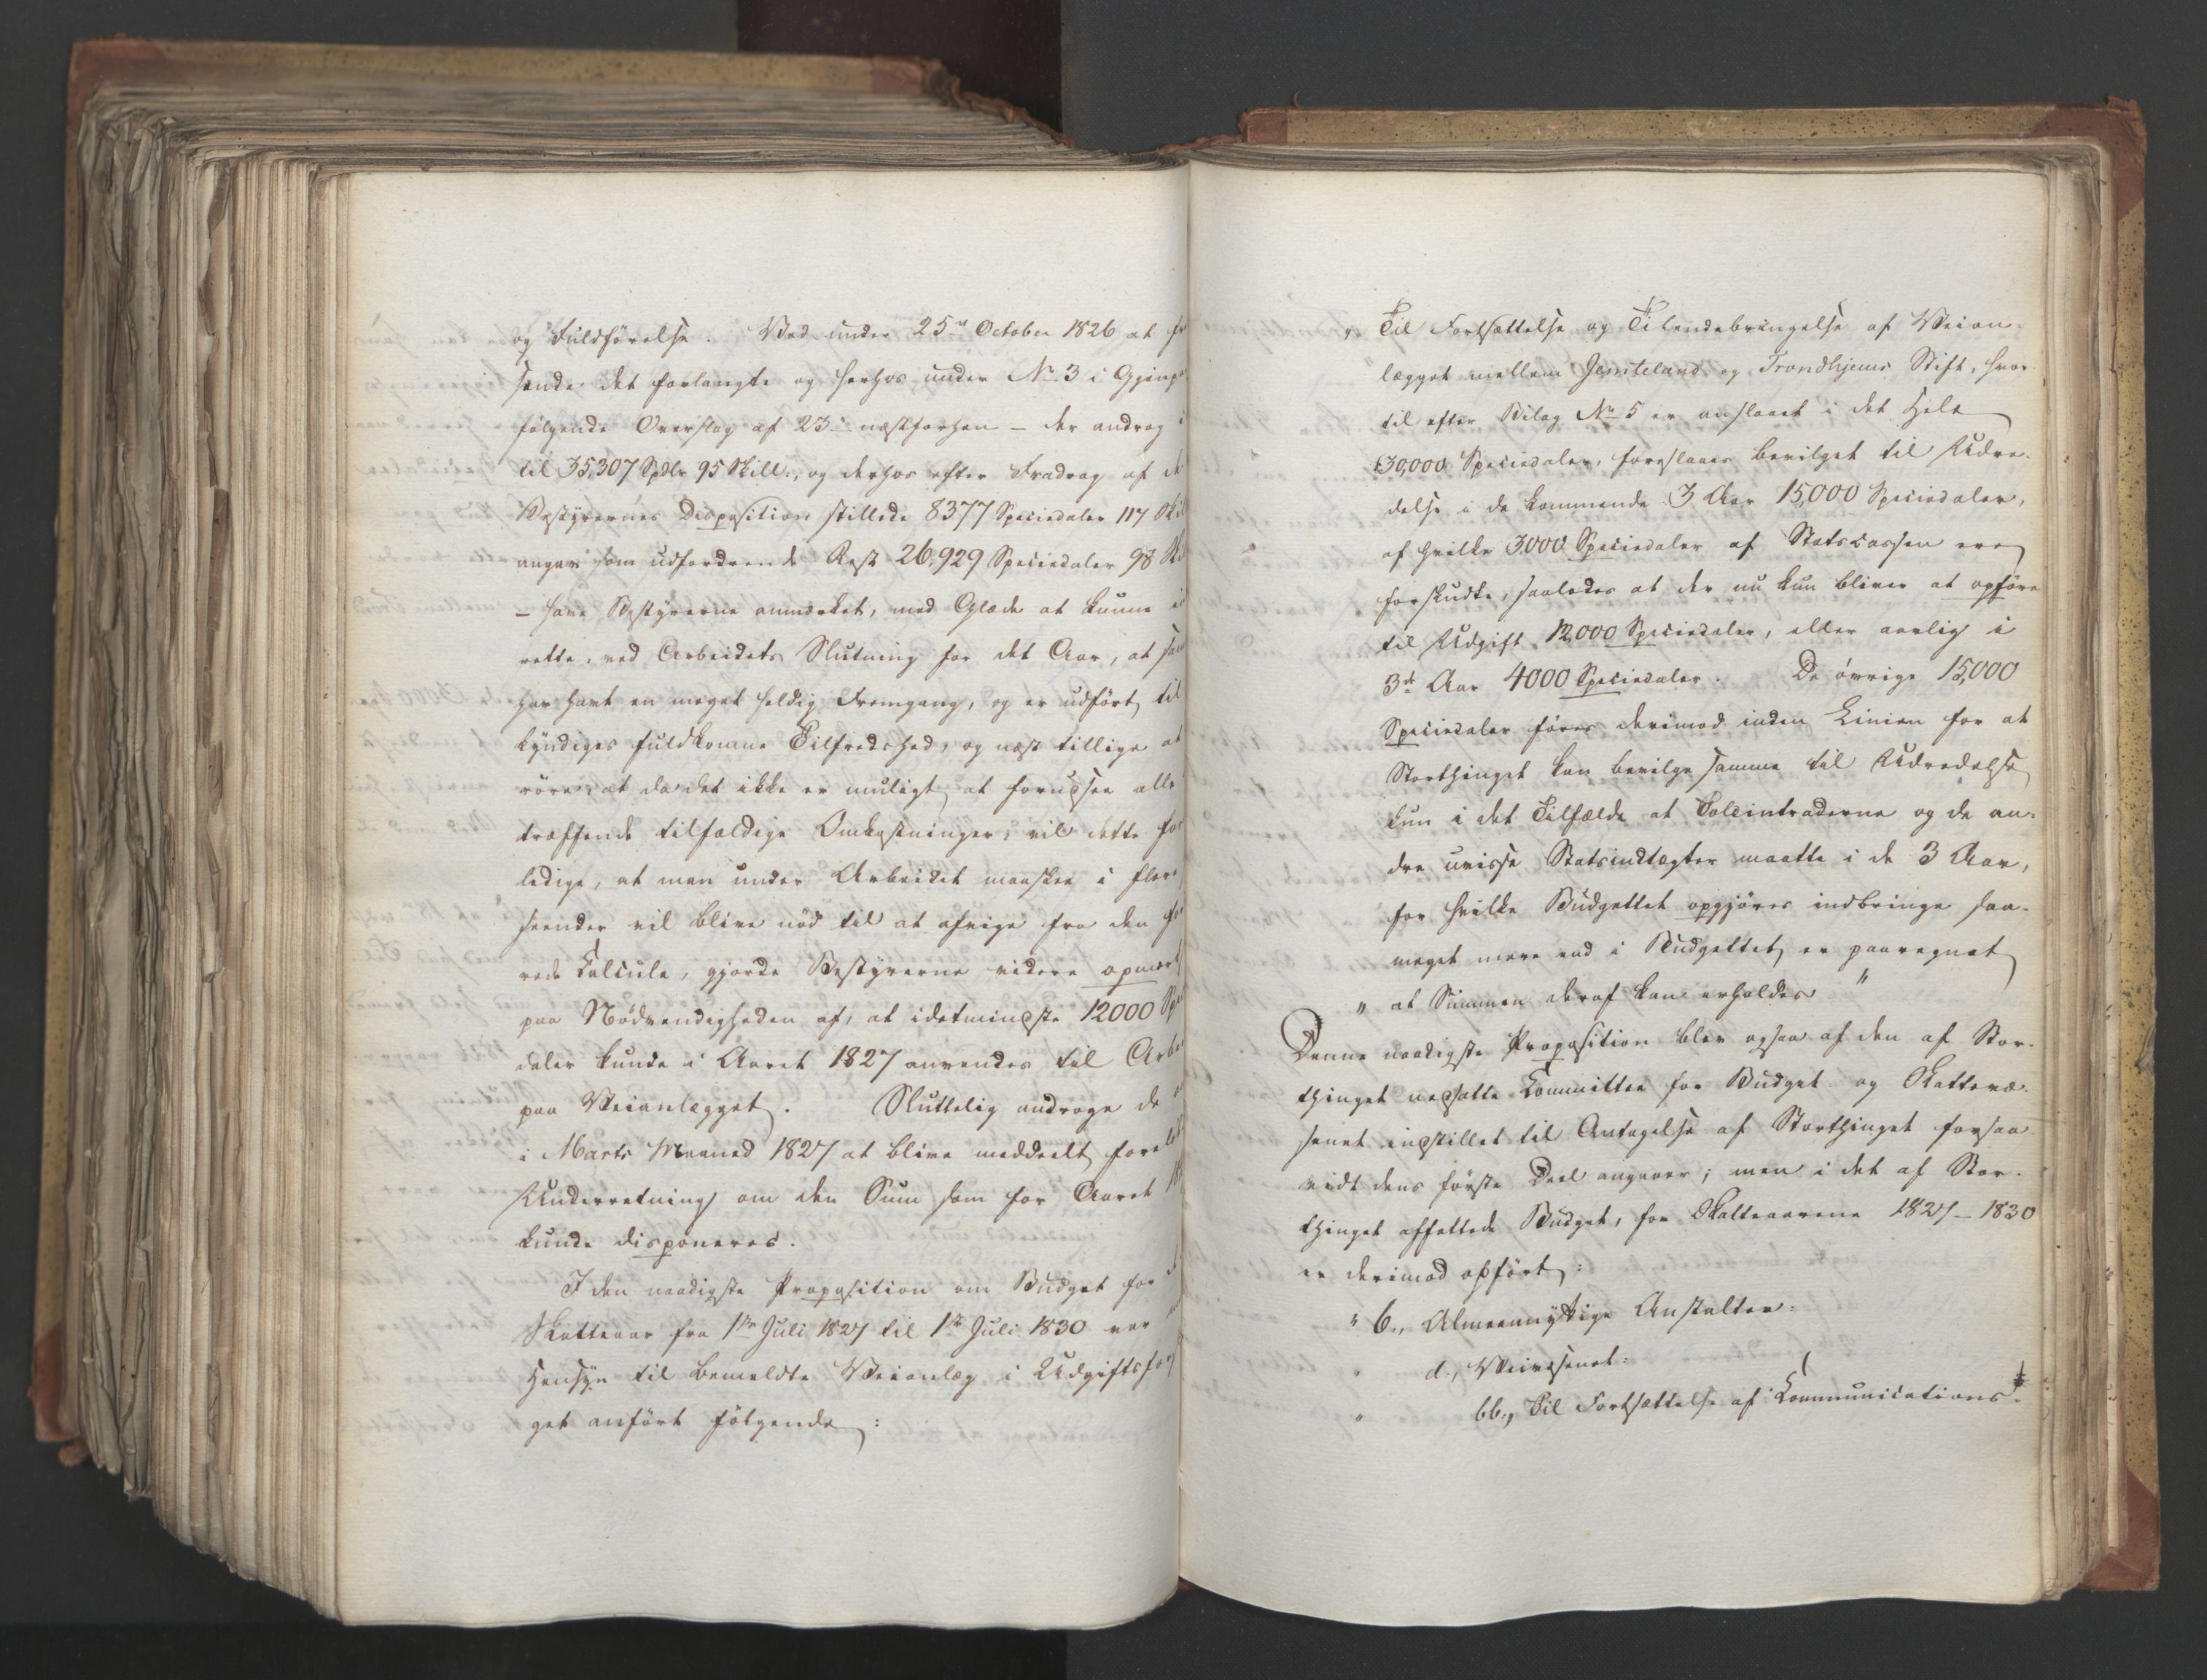 og Fuldförelse. Ved under 25de October 1826 at
sende det forlangte og herhos under No 3 i Gjenpart
følgende Overslag af 23 næstforhen – der androg
til 35,307 Spdlr 95 Skill:, og derhos efter Fradrag af
Bestyrernes Disposition stillede 8377 Speciedaler 117
angav som udfordrende Rest 26,929 Speciedaler 98
– have Bestyrerne anmærket, med Glæde at kunne
rette, ved Arbeidets Slutning for det Aar, at
har havt en meget heldig Fremgang, og er udført til
kyndiges fuldkomne Tilfredshed, og næst tillige at
röre, at da det ikke er muligt at forudsee alle
træffende tilfældige Omkostninger, vil dette
ledige, at man under Arbeidet maaskee i flere
seender vil blive nöd til at afvige fra den
rede Calcule, gjorde Bestyrerne videre opmærk
paa Nödvendigheden af, at idetmindste 12000
daler kunde i Aaret 1827 anvendes til
paa Veianlægget. Sluttelig androge de
i Marts Maaned 1827 at blive meddeelt
Underretning om den Sum som for Aaret
kunde disponeres.
I den naadigste Proposition om Budget for
Skatteaar fra 1ste Juli 1827 til 1ste Juli 1830 var
Hensyn til bemeldte Veianlæg i
get anført følgende:
"Til Fortsættelse og Tilendebringelse af Veian-
lægget mellem Jemteland og Trondhjems Stift, hvor-
til efter Bilag No 5 er anslaaet i det Hele
30,000 Speciedaler, foreslaaes bevilget til Udre-
delse i de kommende 3 Aar 15,000 Speciedaler,
af hvilke 3,000 Speciedaler af Statscassen ere
forskudte, saaledes at der nu kun bliver at opføre
til Udgift 12,000 Speciedaler, eller aarlig i
3de Aar 4000 Speciedaler. De övrige 15,000
Speciedaler føres derimod inden Linien for at
Storthinget kan bevilge samme til Udredelse
kun i det Tilfælde at Toldintraderne og de an-
dre uvisse Statsindtægter maatte i de 3 Aar,
for hvilke Budgettet opgjöres indbringe saa-
meget mere end i Budgettet er paaregnet
" at Summen deraf kan erholdes "
Denne naadigste Proposition blev ogsaa af den af Stor-
thinget nedsatte Committee for Budget og Skattevæ-
senet indstillet til Antagelse af Storthinget forsaa-
vidt dens første Deel angaaer; men i det af Stor-
thinget affattede Budget, for Skatteaarene 1827 – 1830
er derimod opført:
" 6., Almeennyttige Anstalter:
" d., Veivæsenet:
" bb., Til Fortsættelse af Communications-